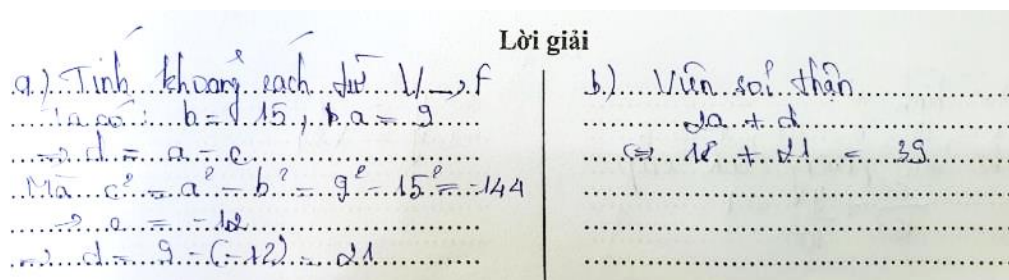 Lời giải
a.) Tính khoảng cách từ V → F
Ta có: b = 15, a = 9
=> d = a - c
Mà c² = a² - b² = 9² - 15² = -144
=> c = -12
=> d = 9 - (-12) = 21
b.) Viên sỏi thận
2a + d
<=> 18 + 21 = 39